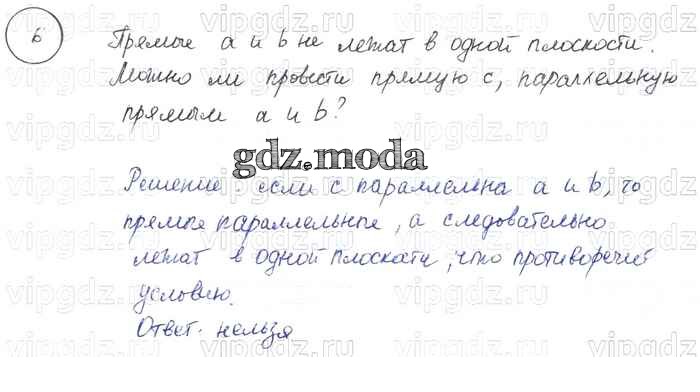 6
Прямые a и b не лежат в одной плоскости.
Можно ли провести прямую c, параллельную
прямым a и b?
gdz.moda
Решение: если c параллельна a и b, то
прямые параллельные, а следовательно
лежат в одной плоскати, что противоречит
условию.
Ответ: нельзя
vipgdz.ru